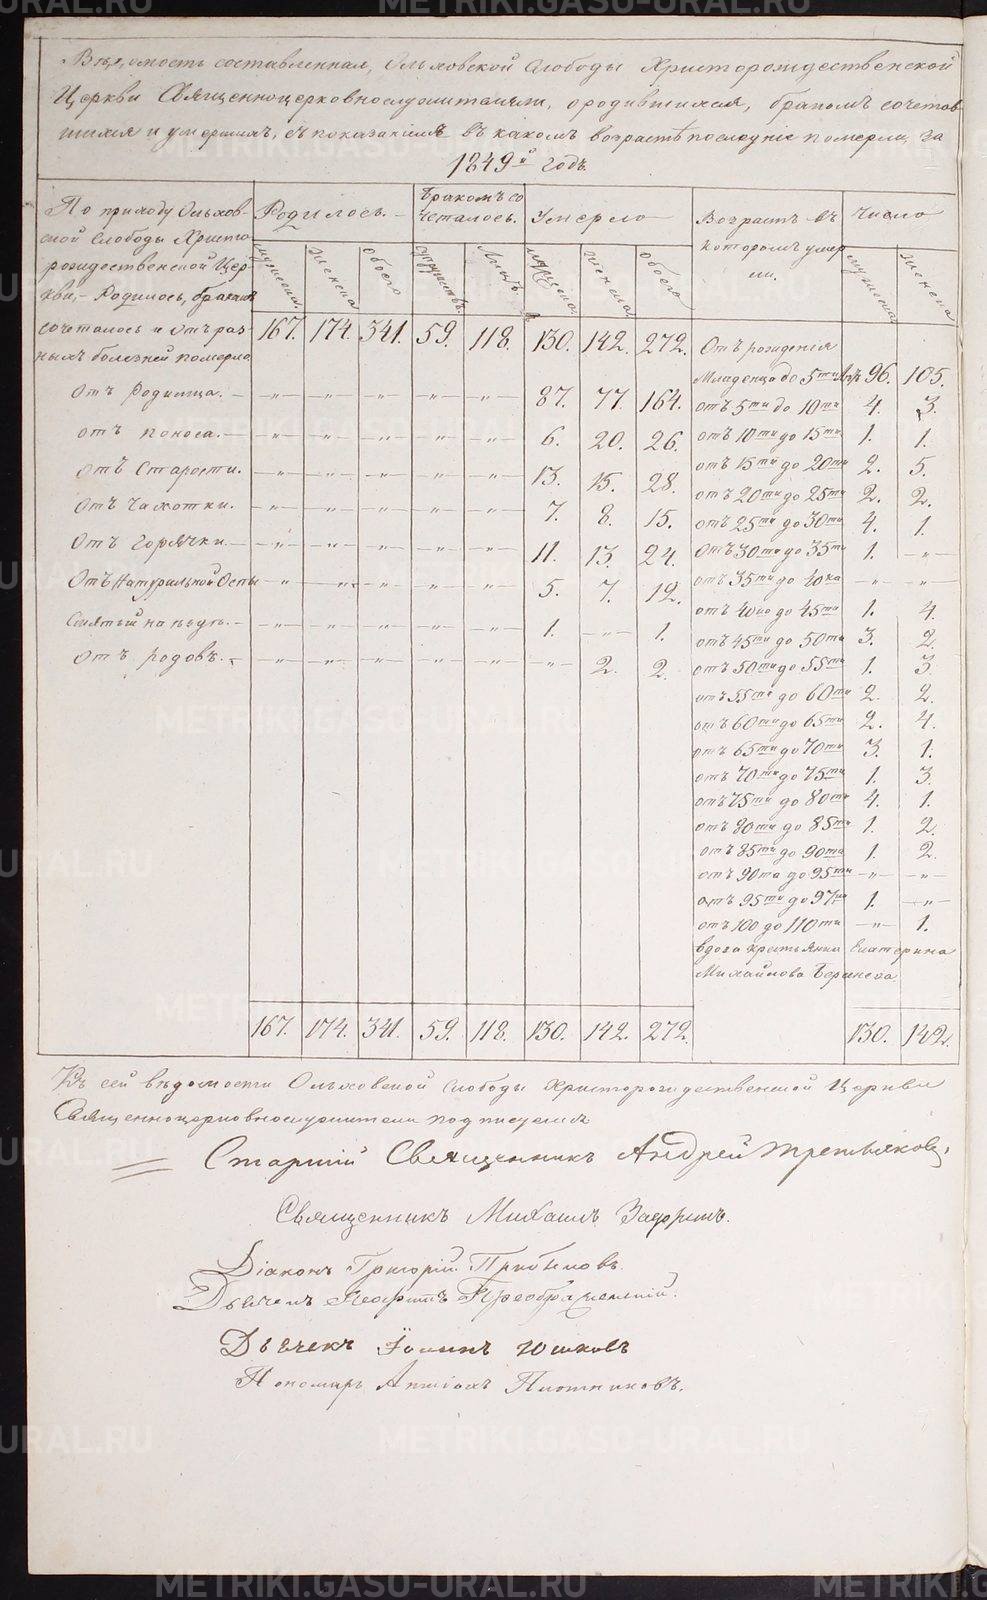 Вѣдомость составленная, Ольховской Слободы Христорождественской
Церкви Священноцерковнослужителями, ородившихся, бракомъ сочетав
шихся и умершихъ, съ показаніемъ въ какомъ возрастѣ последніе померли, за
1849й годъ.
По приходу Ольхов-
ской Слободы Христо
рождественской Цер-
кви,- Родилось, бракомъ
сочеталось и отъ раз
ныхъ болезней померло
Родилось.-
Бракомъ со
четалось.
Умерло
Возрастъ въ
которомъ умер
ли.
Число
мужеска.
женска
обоего
супружествъ.
Лицъ.
мужеска
женска
обоего
мужеска
женска
167. 174. 341. 59. 118. 130. 142. 272.
Отъ Родимца. - 87. 77. 164.
отъ поноса. - 6. 20. 26.
отъ Старости. 13. 15. 28.
отъ Чахотки. 7. 8. 15.
отъ Горячки. - 11. 13. 24.
Отъ Натуральной Оспы 5. 7. 12.
1. -„- 1.
отъ родовъ. - -„- 2. 2.
Отъ рожденія
Младенца до 5ти лѣтъ 96. 105.
отъ 5ти до 10ти 4. 3.
отъ 10ти до 15ти 1. 1.
отъ 15ти до 20ти 2. 5.
отъ 20ти до 25ти 2. 2.
отъ 25ти до 30ти 4. 1.
отъ 30ти до 35ти 1. -„-
отъ 35ти до 40ка -„- -„-
отъ 40ка до 45ти 1. 4.
отъ 45ти до 50ти 3. 2.
отъ 50ти до 55ти 1. 3.
отъ 55ти до 60ти 2. 2.
отъ 60ти до 65ти 2. 4.
отъ 65ти до 70ти 3. 1.
отъ 70ти до 75ти 1. 3.
отъ 75ти до 80ти 4. 1.
отъ 80ти до 85ти 1. 2.
отъ 85ти до 90та 1. 2.
отъ 90та до 95ти -„- -„-
отъ 95ти до 97ми 1. -„-
отъ 100 до 110ти -„- 1.
вдова крестьянка Екатерина
Михайлова
167. 174. 341. 59. 118. 130. 142. 272. 130. 142.
Къ сей вѣдомости Ольховской Слободы Христорождественской Церкви
Священноцерковнослужители подписуемся
Старшій Священникъ Андрей Третьяковъ,
Священникъ Михаилъ
Діаконъ Григорій Прибылевъ.
Дьячекъ Преображенскій.
Дьячекъ Іоаннъ Юшковъ
Пономарь Плотниковъ.
METRIKI.GASO-URAL.RU